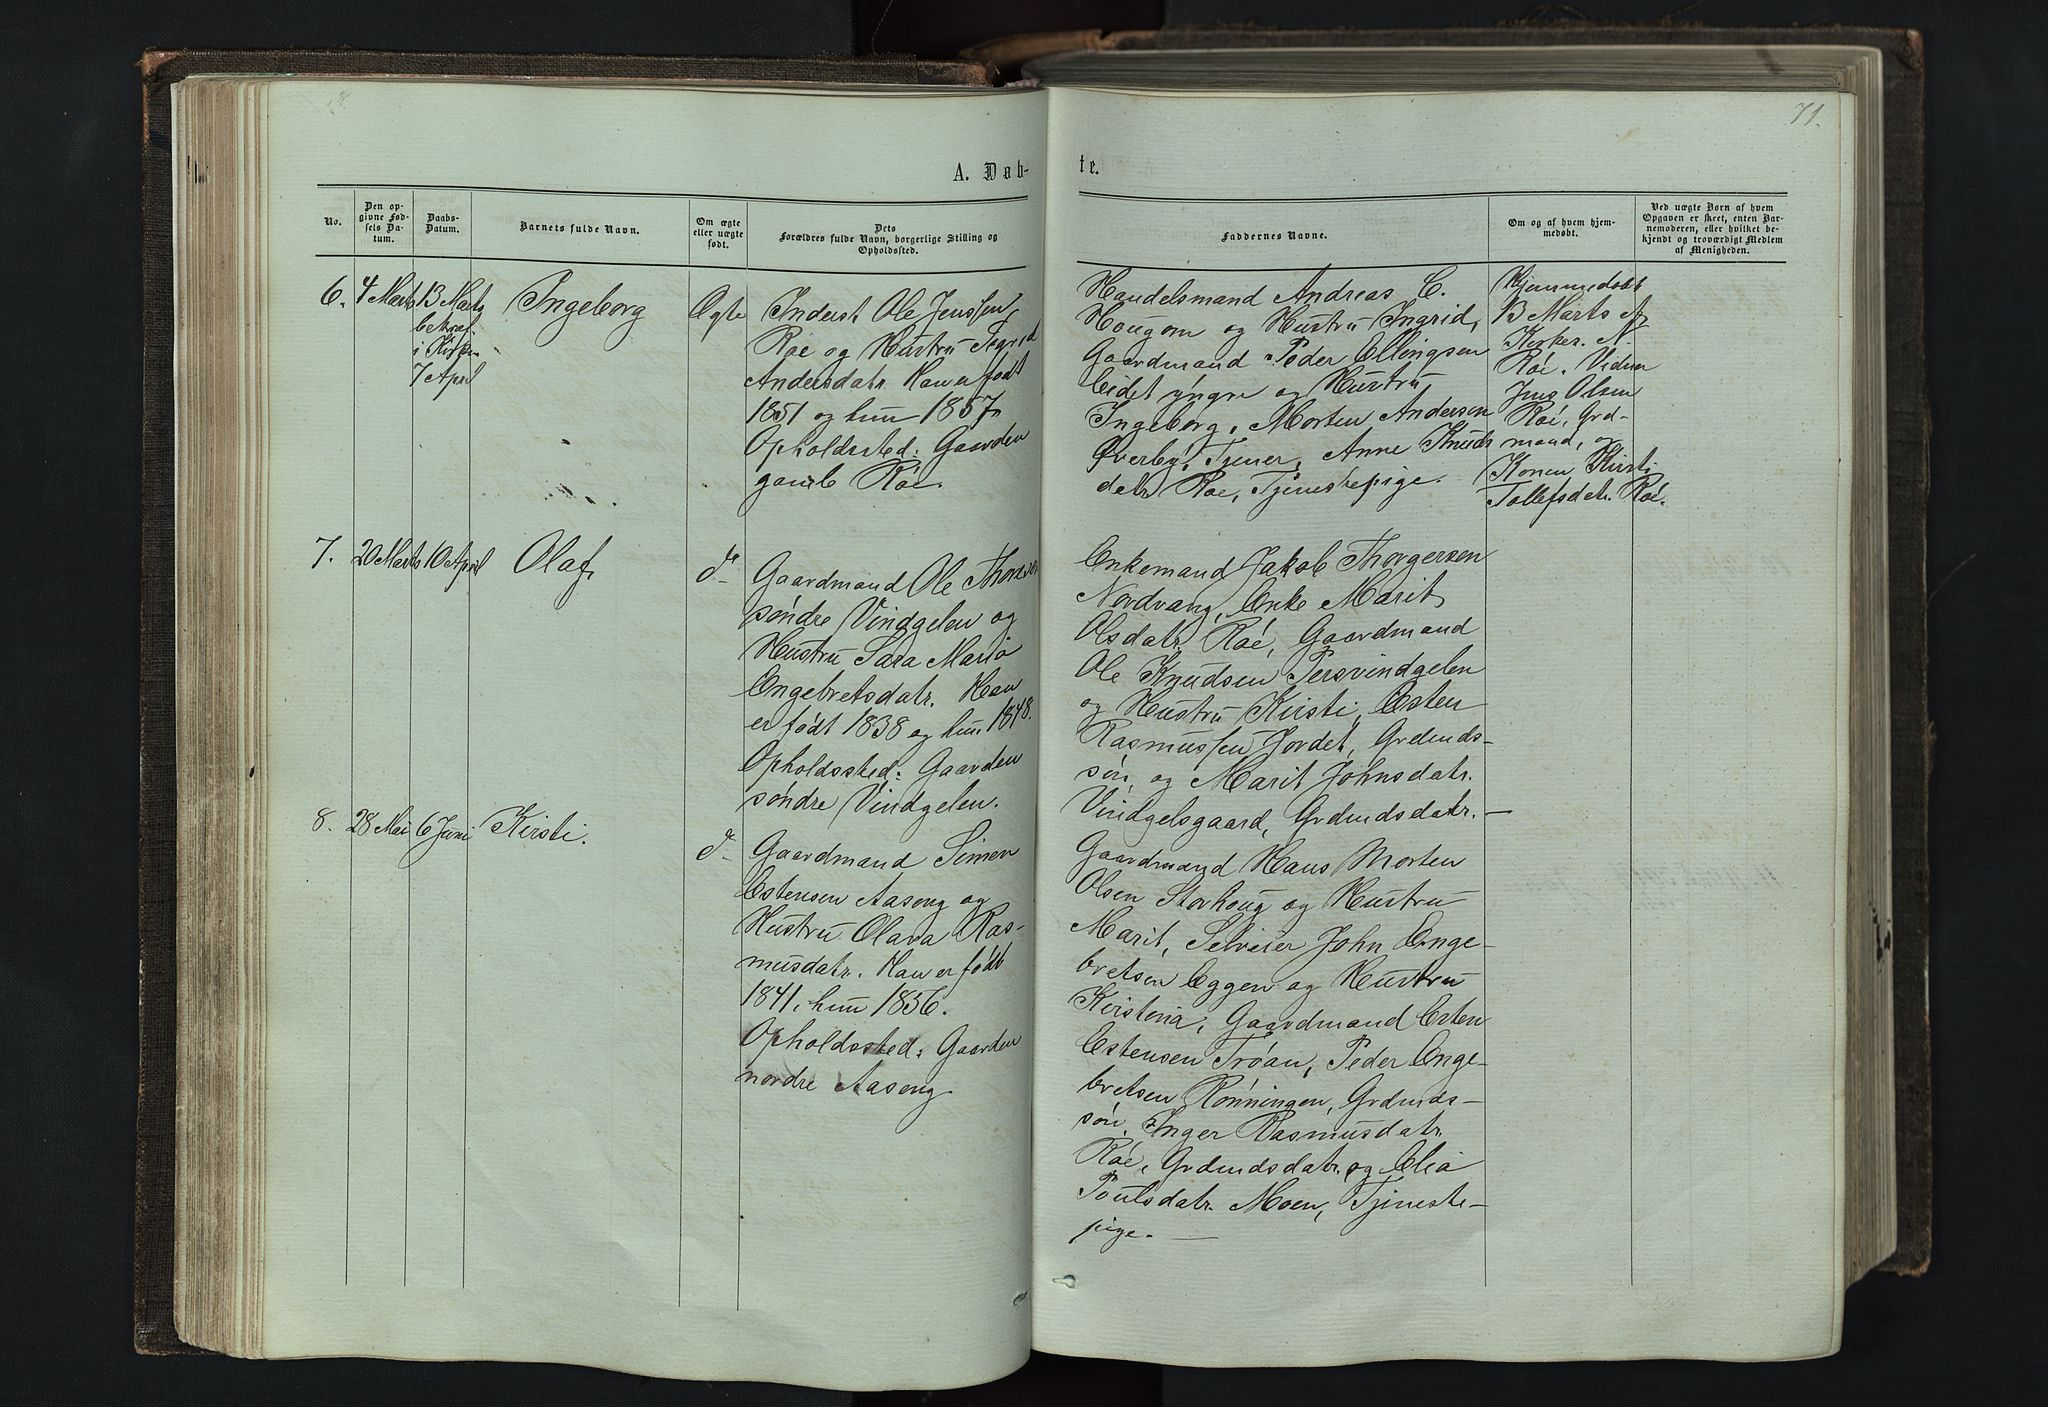 71.
A. Døb-
te.
No.
Den op-
givne Fød-
sels Da-
tum.
Daabs-
Datum.
Barnets fulde Navn.
Om ægte
eller uægte
født.
Dets
Forældres fulde Navn, borgerlige Stilling og
Opholdssted.
Faddernes Navne.
Om og af hvem hjem-
medøbt.
Ved uægte Børn af hvem
Opgaven er skeet, enten Bar-
nemoderen, eller hvilket be-
kjendt og troværdigt Medlem
af Menigheden.
6.
4 Marts
13 Marts
bekræf.
i Kirken
7 April
Ingeborg
Ægte
Inderst Ole Jenssen
Røe og Hustru Sigrid
Andersdatr. Han er født
1851 og hun 1857
Opholdssted: Gaarden
gamle Røe.
Handelsmand Andreas C.
Hougom og Hustru Ingrid,
Gaardmand Peder Ellingsen
Eidet yngre og Hustru
Ingeborg, Morten Andersen
Øverby, Tjener, Anne Knuds
datr. Røe, Tjenestepige.
Hjemmedøbt
13 Marts af
Kirkes. N.
Røe. Vidner
Jens Olsen
Røe, Grd-
mand, og
Konen Kirsti
Tollefsdatr. Røe.
7.
20 Marts
10 April
Olaf.
do
Gaardmand Ole Thoresen
søndre Vindgelen og
Hustru Sara Maria
Engebretsdatr. Han
er født 1838 og hun 1848.
Opholdssted: Gaarden
søndre Vindgelen.
Enkemand Jakob Thorgersen
Nordvang, Enke Marit
Olsdatr. Røe, Gaardmand
Ole Knudsen Persvindgelen
og Hustru Kirsti, Esten
Rasmussen Jordet, Grdmds-
søn, og Marit Johnsdatr.
Vindgelsgaard, Grdmdsdatr. —
8.
28 Mai
6 Juni
Kirsti.
do
Gaardmand Simen
Estensen Aaseng og
Hustru Olava Ras-
musdatr. Han er født
1841, hun 1856.
Opholdssted: Gaarden
nordre Aaseng.
Gaardmand Hans Morten
Olsen Storhoug og Hustru
Marit, Selveier John Enge-
bretsen Eggen og Hustru
Kirstena, Gaardmand Esten
Estensen Trøan, Peder Enge-
bretsen Rønningen, Grdmds-
søn, Inger Rasmusdatr.
Røe, Grdmdsdatr. og Elia
Poulsdatr. Moen, Tjeneste-
pige. —